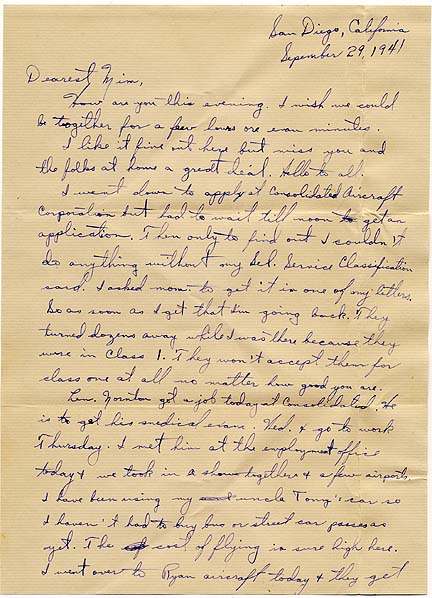 San Diego, California
Sepember 29, 1941
Dearest Mim,
How are you this evening. I wish we could
be together for a few hours ore evan minutes.
I like it fine out here but miss you and
the folks at home a great deal. Hello to all.
I went down to apply at Consolidated Aircraft
Corporation but had to wait till noon to get an
application. Then only to find out I couldn't
do anything without my Sel. Service Classification
card. I asked mom to get it in one of my letters.
So as soon as I get that I'm going back. They
turned dozens away while I was there because they
were in Class 1. They won't accept them for
class one at all no matter how good you are.
got a job today at Consolidated. He
is to get his medical exam. Wed. & go to work
Thursday. I met him at the employment office
today & we took in a show together & a few airports
I have been using my uncle Tony's car so
I haven't had to buy bus or street car passes as
yet. The cost of flying is sure high here.
I went over to Ryan aircraft today & they get